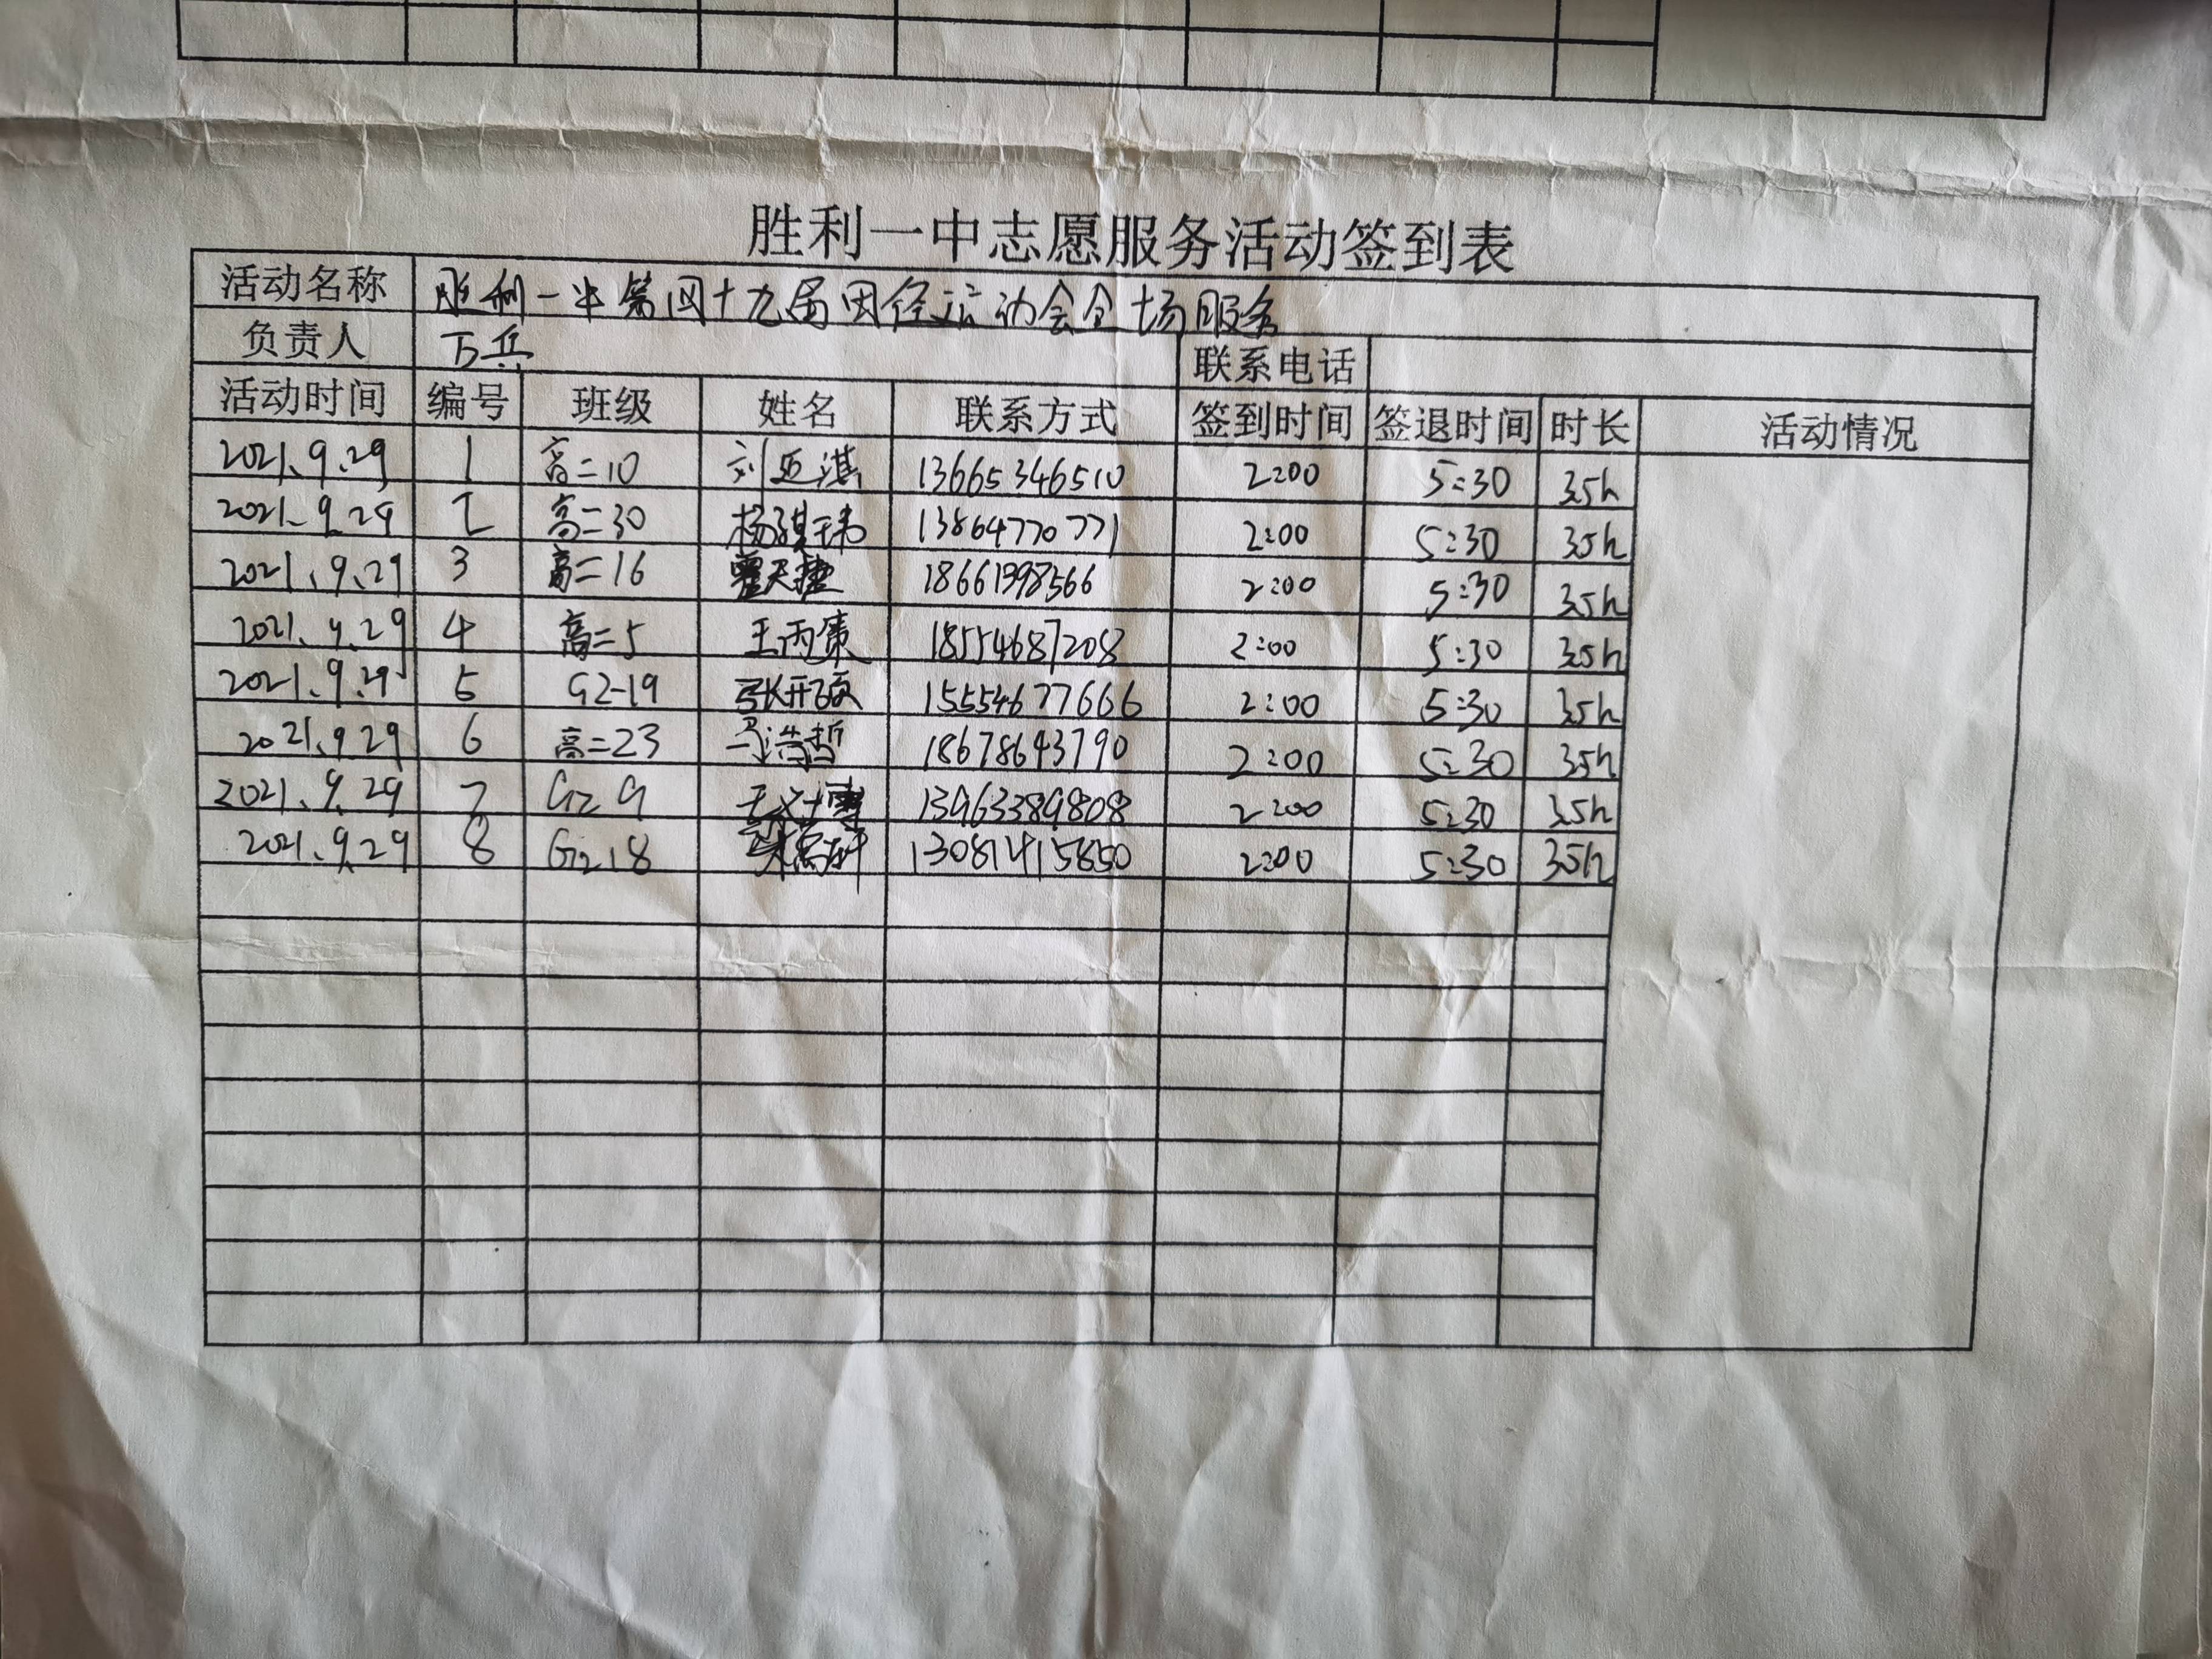 胜利一中志愿服务活动签到表
活动名称 胜利一中第四十九届田径运动会全场服务
负责人 万兵 联系电话
活动时间 编号 班级 姓名 联系方式 签到时间 签退时间 时长 活动情况
2021.9.29 1 高二10 刘亚淇 13665346510 2:00 5:30 3.5h
2021.9.29 2 高二30 杨琪玮 13864770771 2:00 5:30 3.5h
2021.9.29 3 高二16 霍天捷 18661398566 2:00 5:30 3.5h
2021.9.29 4 高二5 王丙策 18554687208 2:00 5:30 3.5h
2021.9.29 5 G2-19 张开硕 15554677666 2:00 5:30 3.5h
2021.9.29 6 高二23 马浩哲 18678643790 2:00 5:30 3.5h
2021.9.29 7 G2 9 13963389808 2:00 5:30 3.5h
2021.9.29 8 G2 18 13081415850 2:00 5:30 3.5h